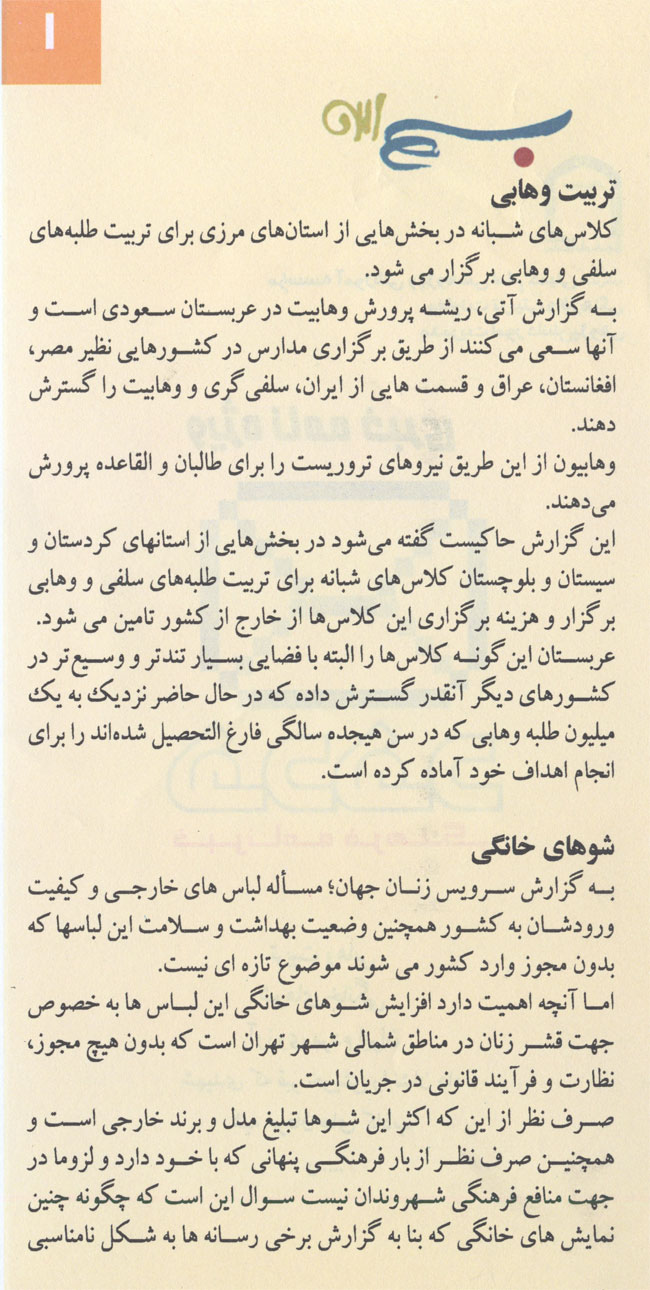 ۱
بسم الله
تربیت وهابی
کلاس‌های شبانه در بخش‌هایی از استان‌های مرزی برای تربیت طلبه‌های
سلفی و وهابی برگزار می شود.
به گزارش آتی، ریشه پرورش وهابیت در عربستان سعودی است و
آنها سعی می‌کنند از طریق برگزاری مدارس در کشورهایی نظیر مصر،
افغانستان، عراق و قسمت هایی از ایران، سلفی‌گری و وهابیت را گسترش
دهند.
وهابیون از این طریق نیروهای تروریست را برای طالبان و القاعده پرورش
می‌دهند.
این گزارش حاکیست گفته می‌شود در بخش‌هایی از استانهای کردستان و
سیستان و بلوچستان کلاس‌های شبانه برای تربیت طلبه‌های سلفی و وهابی
برگزار و هزینه برگزاری این کلاس‌ها از خارج از کشور تامین می شود.
عربستان این‌گونه کلاس‌ها را البته با فضایی بسیار تندتر و وسیع‌تر در
کشورهای دیگر آنقدر گسترش داده که در حال حاضر نزدیك به یك
میلیون طلبه وهابی که در سن هیجده سالگی فارغ التحصیل شده‌اند را برای
انجام اهداف خود آماده کرده است.
شوهای خانگی
به گزارش سرویس زنان جهان؛ مسأله لباس های خارجی و کیفیت
ورودشان به کشور همچنین وضعیت بهداشت و سلامت این لباسها که
بدون مجوز وارد کشور می شوند موضوع تازه ای نیست.
اما آنچه اهمیت دارد افزایش شوهای خانگی این لباس ها به خصوص
جهت قشر زنان در مناطق شمالی شهر تهران است که بدون هیچ مجوز،
نظارت و فرآیند قانونی در جریان است.
صرف نظر از این که اکثر این شوها تبلیغ مدل و برند خارجی است و
همچنین صرف نظر از بار فرهنگی پنهانی که با خود دارد و لزوما در
جهت منافع فرهنگی شهروندان نیست سوال این است که چگونه چنین
نمایش های خانگی که بنا به گزارش برخی رسانه ها به شکل نامناسبی